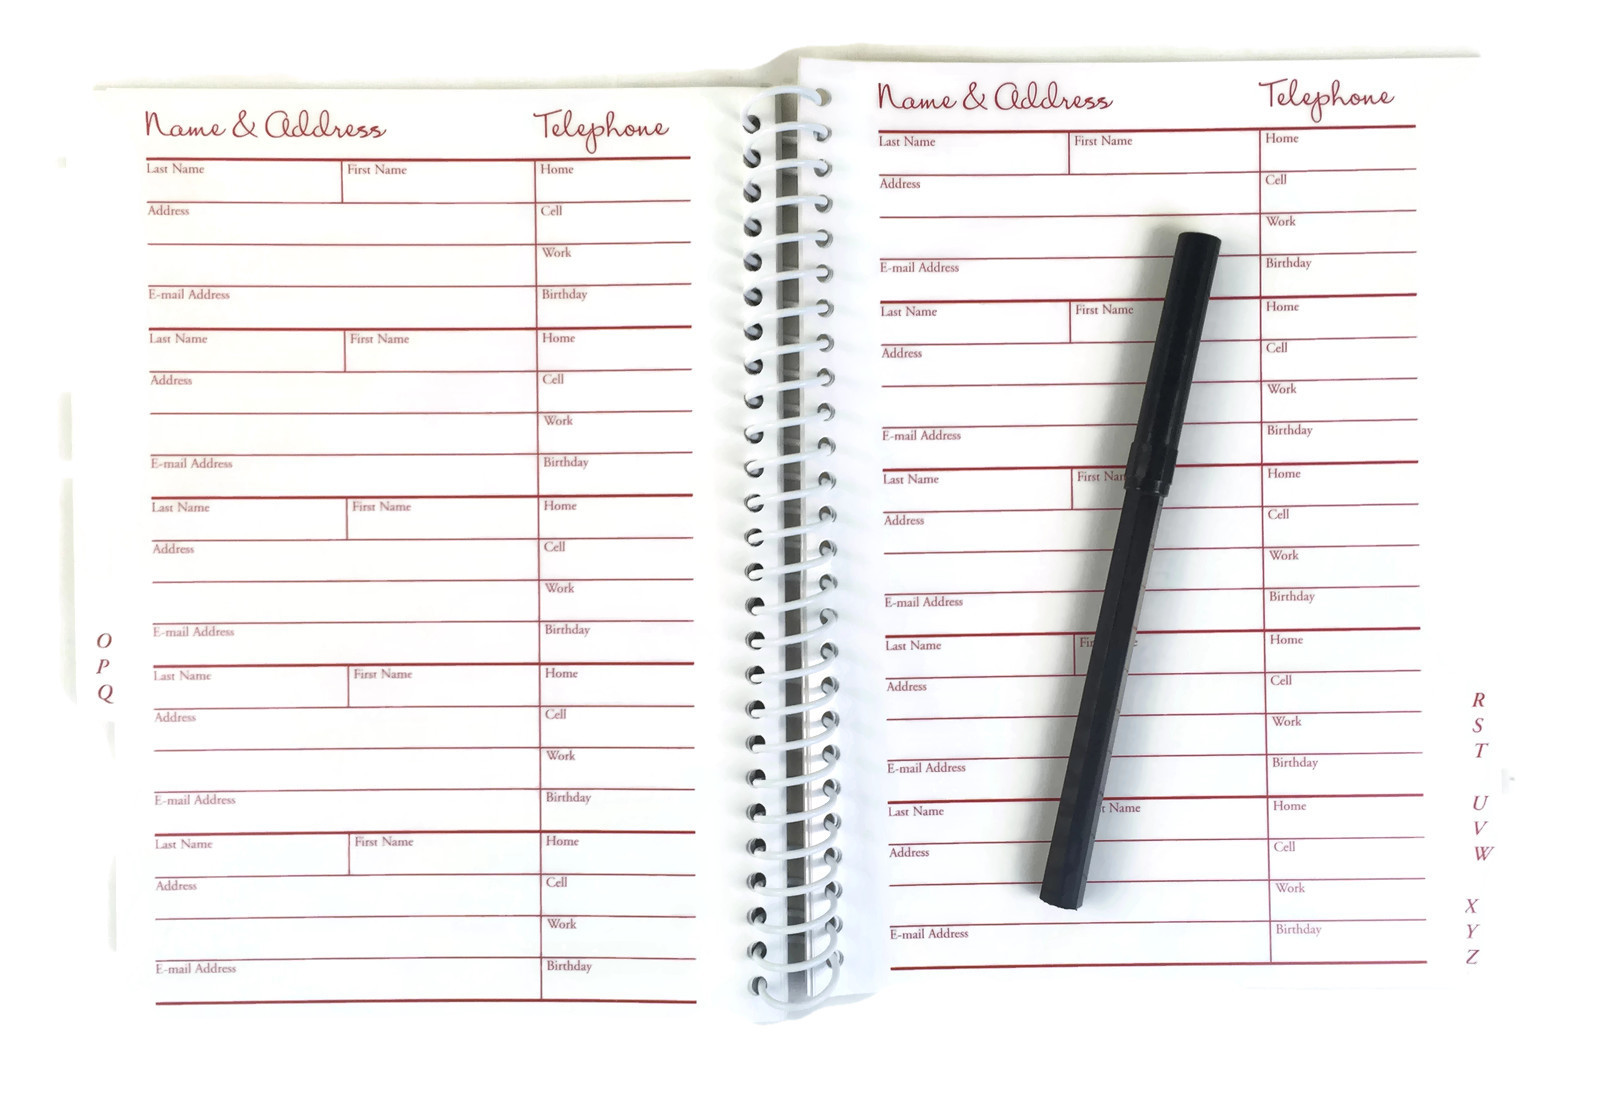 Name & Address Telephone
Last Name First Name Home
Address Cell
Work
E-mail Address Birthday
Last Name First Name Home
Address Cell
Work
E-mail Address Birthday
Last Name First Name Home
Address Cell
Work
E-mail Address Birthday
Last Name First Name Home
Address Cell
Work
E-mail Address Birthday
Last Name First Name Home
Address Cell
Work
E-mail Address Birthday
O
P
Q
Name & Address Telephone
Last Name First Name Home
Address Cell
Work
E-mail Address Birthday
Last Name First Name Home
Address Cell
Work
E-mail Address Birthday
Last Name First Home
Address Cell
Work
E-mail Address Birthday
Last Name Home
Address Cell
Work
E-mail Address Birthday
Last Name Name Home
Address Cell
Work
E-mail Address Birthday
R
S
T
U
V
W
X
Y
Z